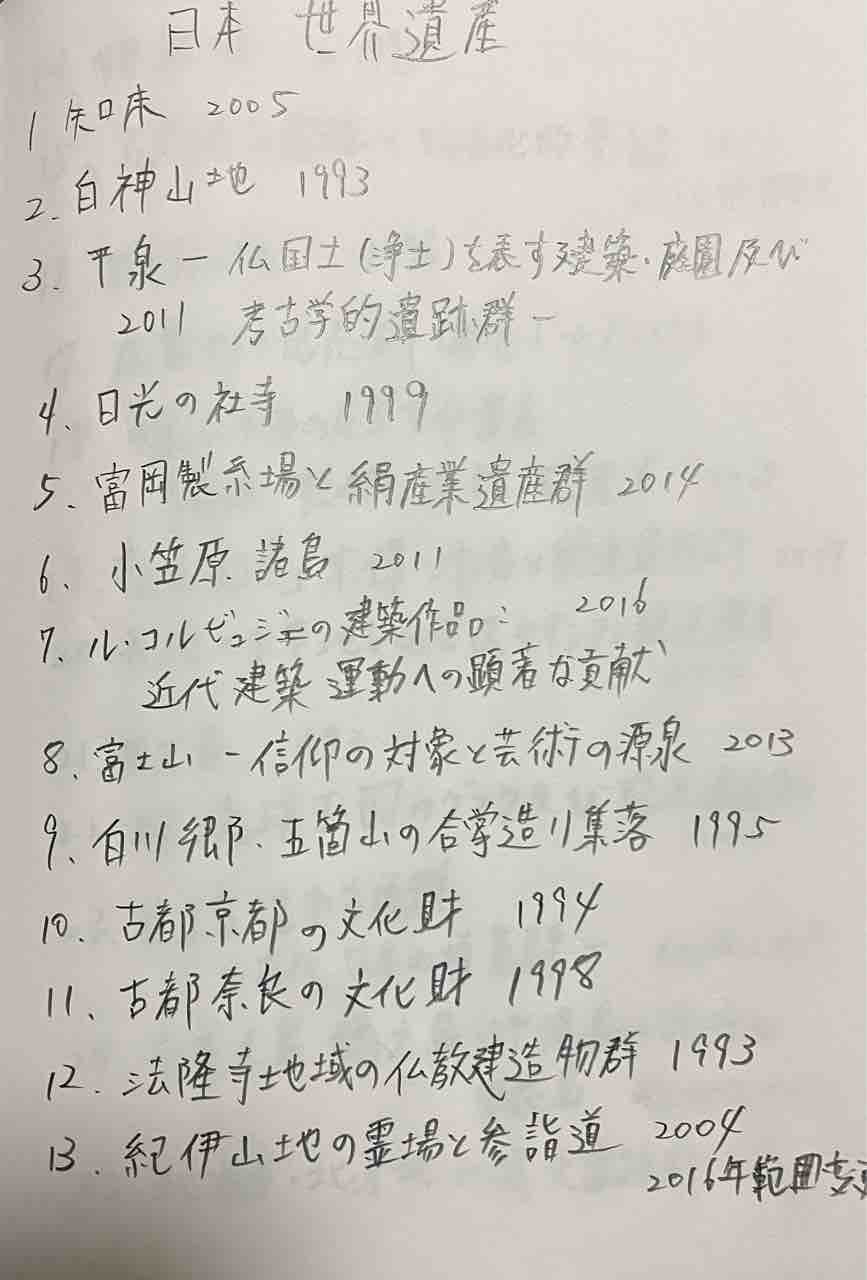 日本 世界遺産
1 知床 2005
2. 白神山地 1993
3. 平泉ー仏国土(浄土)を表する建築・庭園及び
2011 考古学的遺跡群ー
4. 日光の社寺 1999
5. 富岡製糸場と絹産業遺産群 2014
6. 小笠原諸島 2011
7. ル・コルビュジエの建築作品: 2016
近代建築運動への顕著な貢献
8. 富士山ー信仰の対象と芸術の源泉 2013
9. 白川郷・五箇山の合掌造り集落 1995
10. 古都京都の文化財 1994
11. 古都奈良の文化財 1998
12. 法隆寺地域の仏教建造物群 1993
13. 紀伊山地の霊場と参詣道 2004
2016年範囲変